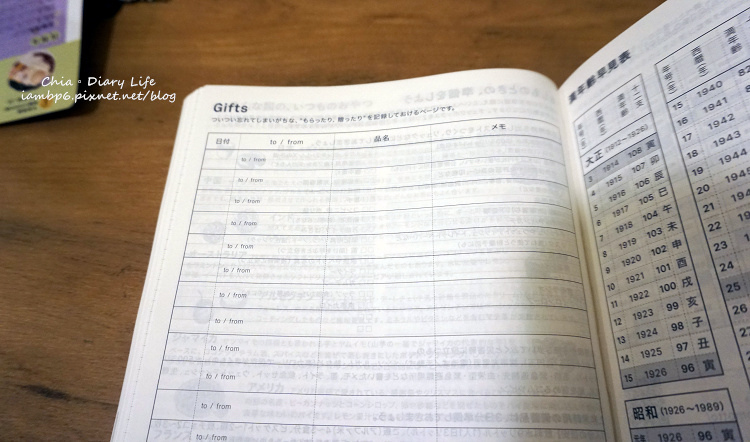 Chia。Diary Life
iambp6.pixnet.net/blog
Gifts
ついつい忘れてしまいがちな、"もらったり、贈ったり"を記録しておけるページです。
日付 to / from 品名 メモ
to / from
to / from
to / from
to / from
to / from
to / from
to / from
to / from
to / from
to / from
to / from
to / from
年齢早見表
大正 (1912~1926)
3 1914 108 寅
4 1915 107 卯
5 1916 106 辰
6 1917 105 巳
7 1918 104 午
8 1919 103 未
9 1920 102 申
10 1921 101 酉
11 1922 100 戌
12 1923 99 亥
13 1924 98 子
14 1925 97 丑
15 1926 96 寅
昭和 (1926~1989)
元年 1926 96 寅
15 1940 82
16 1941
17 1942
18 1943
19 1944
20 1945
21
22
23
24
25
26